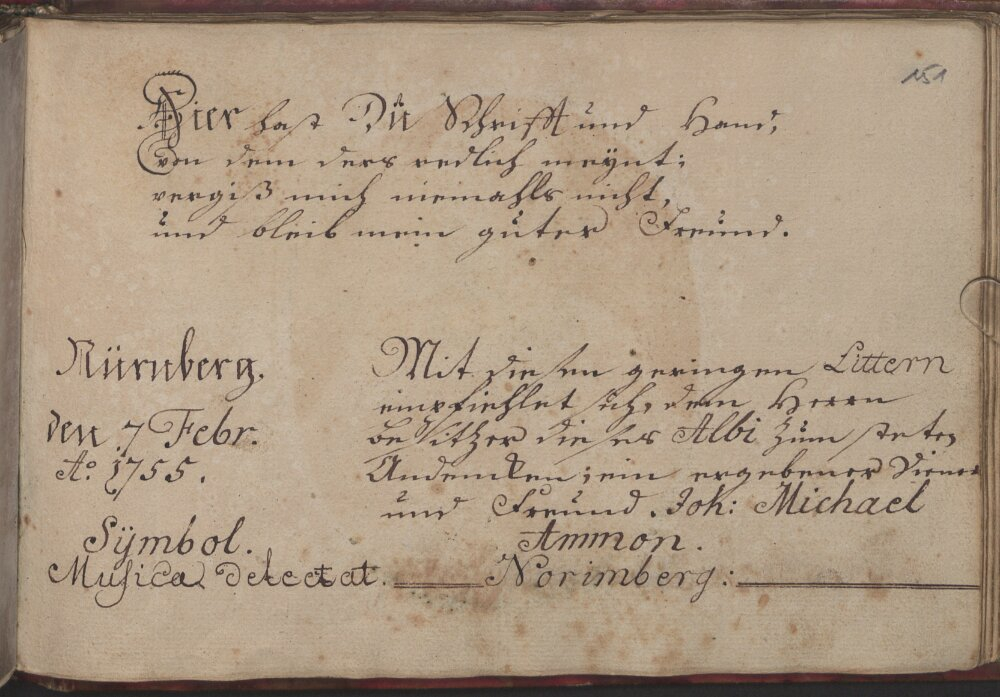 151
Hier hast Dü Schrifft und Hand,
von dem ders redlich meynt;
vergiß mich niemahls nicht,
und bleib mein güter Freünd.
Nürnberg.
den 7 Febr.
Aº. 1755.
Sÿmbol.
Musica delectat.
Mit diesen geringen Littern
empfiehlet sich, dem Herrn
besitzer dieses Albi züm steten
Andencken; ein ergebener Diener
und Freund. Joh: Michael
Ammon.
Norimberg: